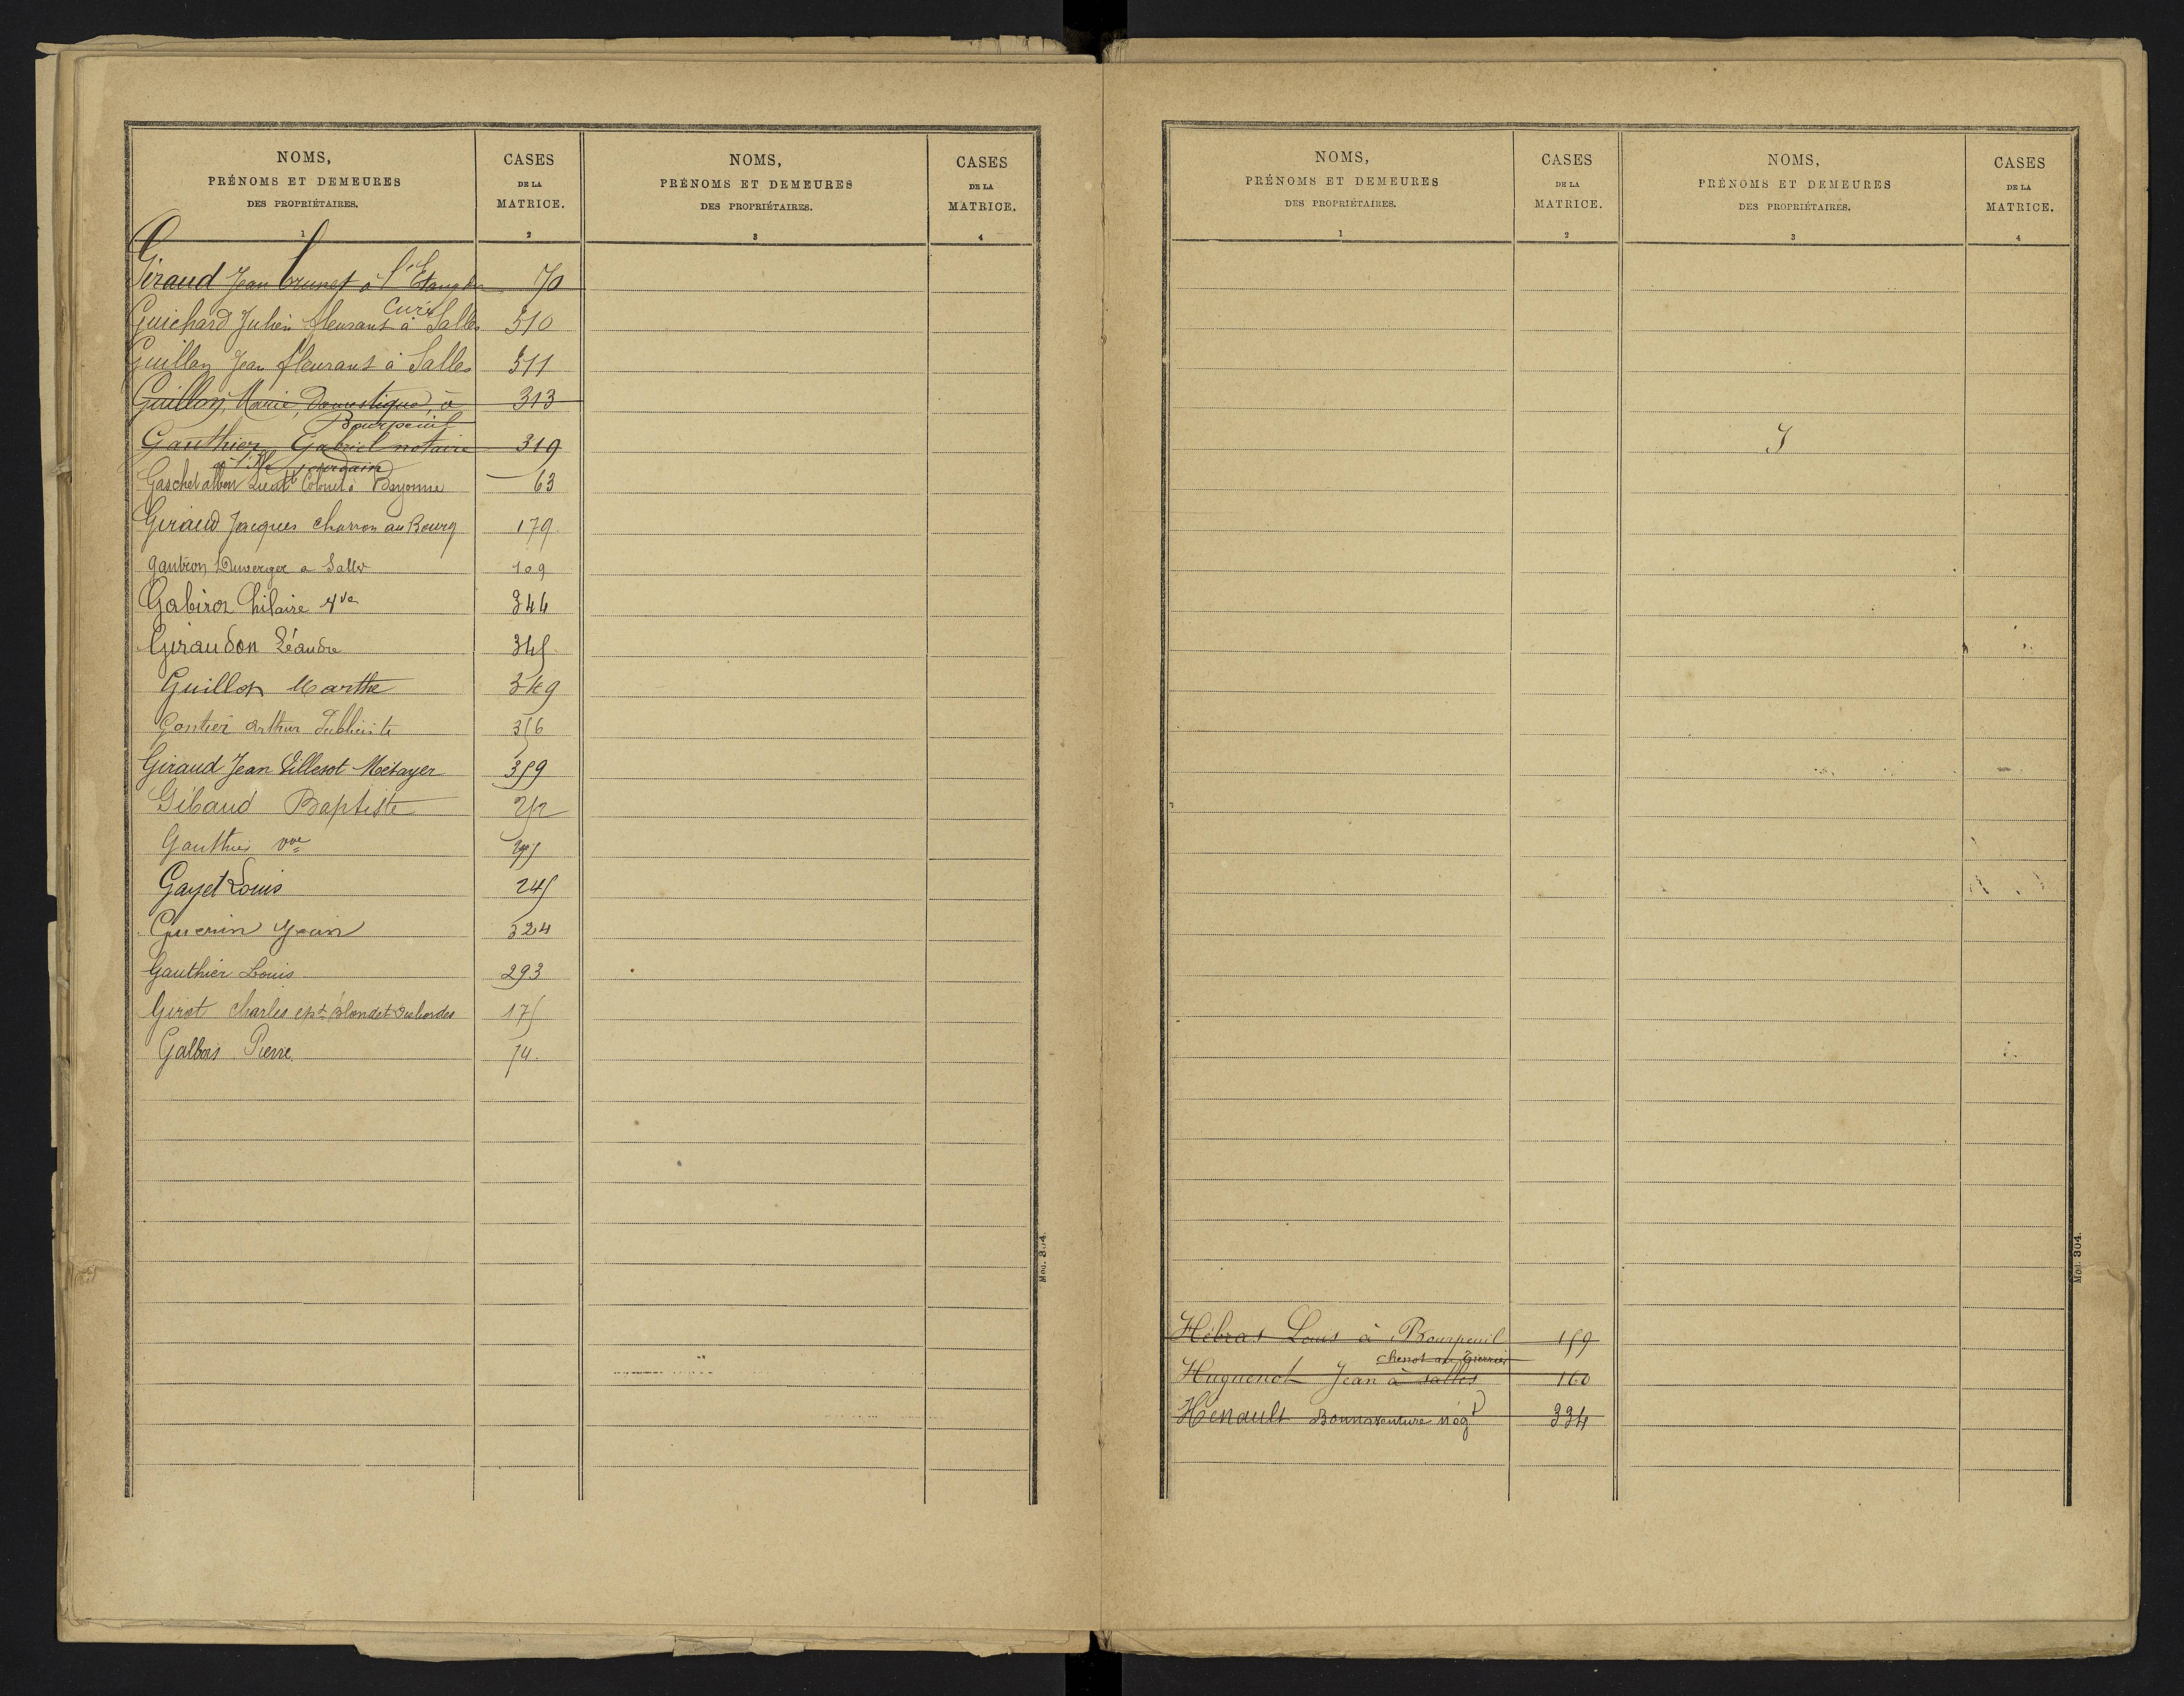 NOMS,
PRÉNOMS ET DEMEURES
DES PROPRIÉTAIRES.
1
CASES
DE LA
MATRICE.
2
NOMS,
PRÉNOMS ET DEMEURES
DES PROPRIÉTAIRES.
3
CASES
DE LA
MATRICE.
4
Giraud Jean brunet à l'Etang 70
Curé
Guichard Julien fleurant à Salles 310
Guillon Jean fleurant à Salles 311
Guillon, Marie, Domestique, à 313
Bourpeuil
Gauthier Gabriel notaire 319
à l'Isle Jourdain
Gaschet Lieut Colonel à Bayonne 63
Giraud Jacques charron au Bourg 179
Gautron Duverger a Salles 109
Gabiroz hilaire Vve 344
Giraudon Léandre 345
Guillot Marthe 349
Gontier arthur Publiciste 356
Giraud Jean Métayer 359
Gibaud Baptiste
Gauthier vve
Gayet Louis 245
Guenin Jean 324
Gauthier Louis 293
Girot Charles Blondet Desbordes 175
Galbois Pierre 74.
Mod. 304.
NOMS,
PRÉNOMS ET DEMEURES
DES PROPRIÉTAIRES.
1
CASES
DE LA
MATRICE.
2
NOMS,
PRÉNOMS ET DEMEURES
DES PROPRIÉTAIRES.
3
CASES
DE LA
MATRICE.
4
J
Hébras Louis à Bourpeuil 159
Huguenot Jean à salles 160
Hénault Bonnaventure nég 334
Mod. 304.